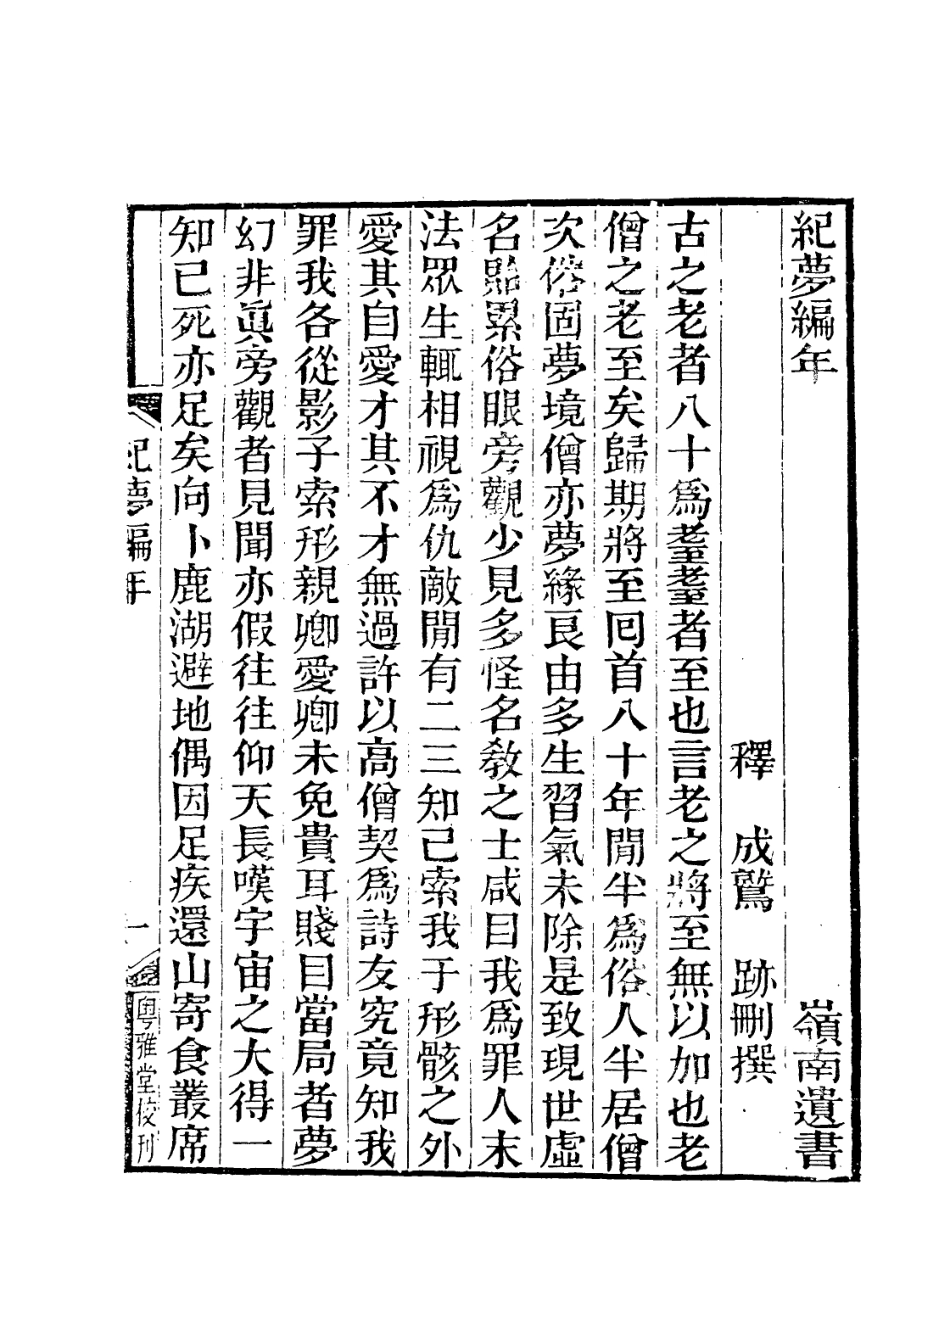 紀夢編年　嶺南遺書
釋　成鷲　跡刪撰
古之老者八十爲耋耋者至也言老之將至無以加也老
僧之老至矣歸期將至回首八十年閒半爲俗人半居僧
次俗固夢境僧亦夢緣良由多生習氣未除是致現世虛
名貽累俗眼旁觀少見多怪名敎之士咸目我爲罪人末
法眾生輒相視爲仇敵閒有二三知己索我于形骸之外
愛其自愛才其不才無過許以高僧契爲詩友究竟知我
罪我各從影子索形親卿愛卿未免貴耳賤目當局者夢
幻非眞旁觀者見聞亦假往往仰天長嘆宇宙之大得一
知已死亦足矣向卜鹿湖避地偶因足疾還山寄食叢席
紀夢編年　一　粵雅堂校刊